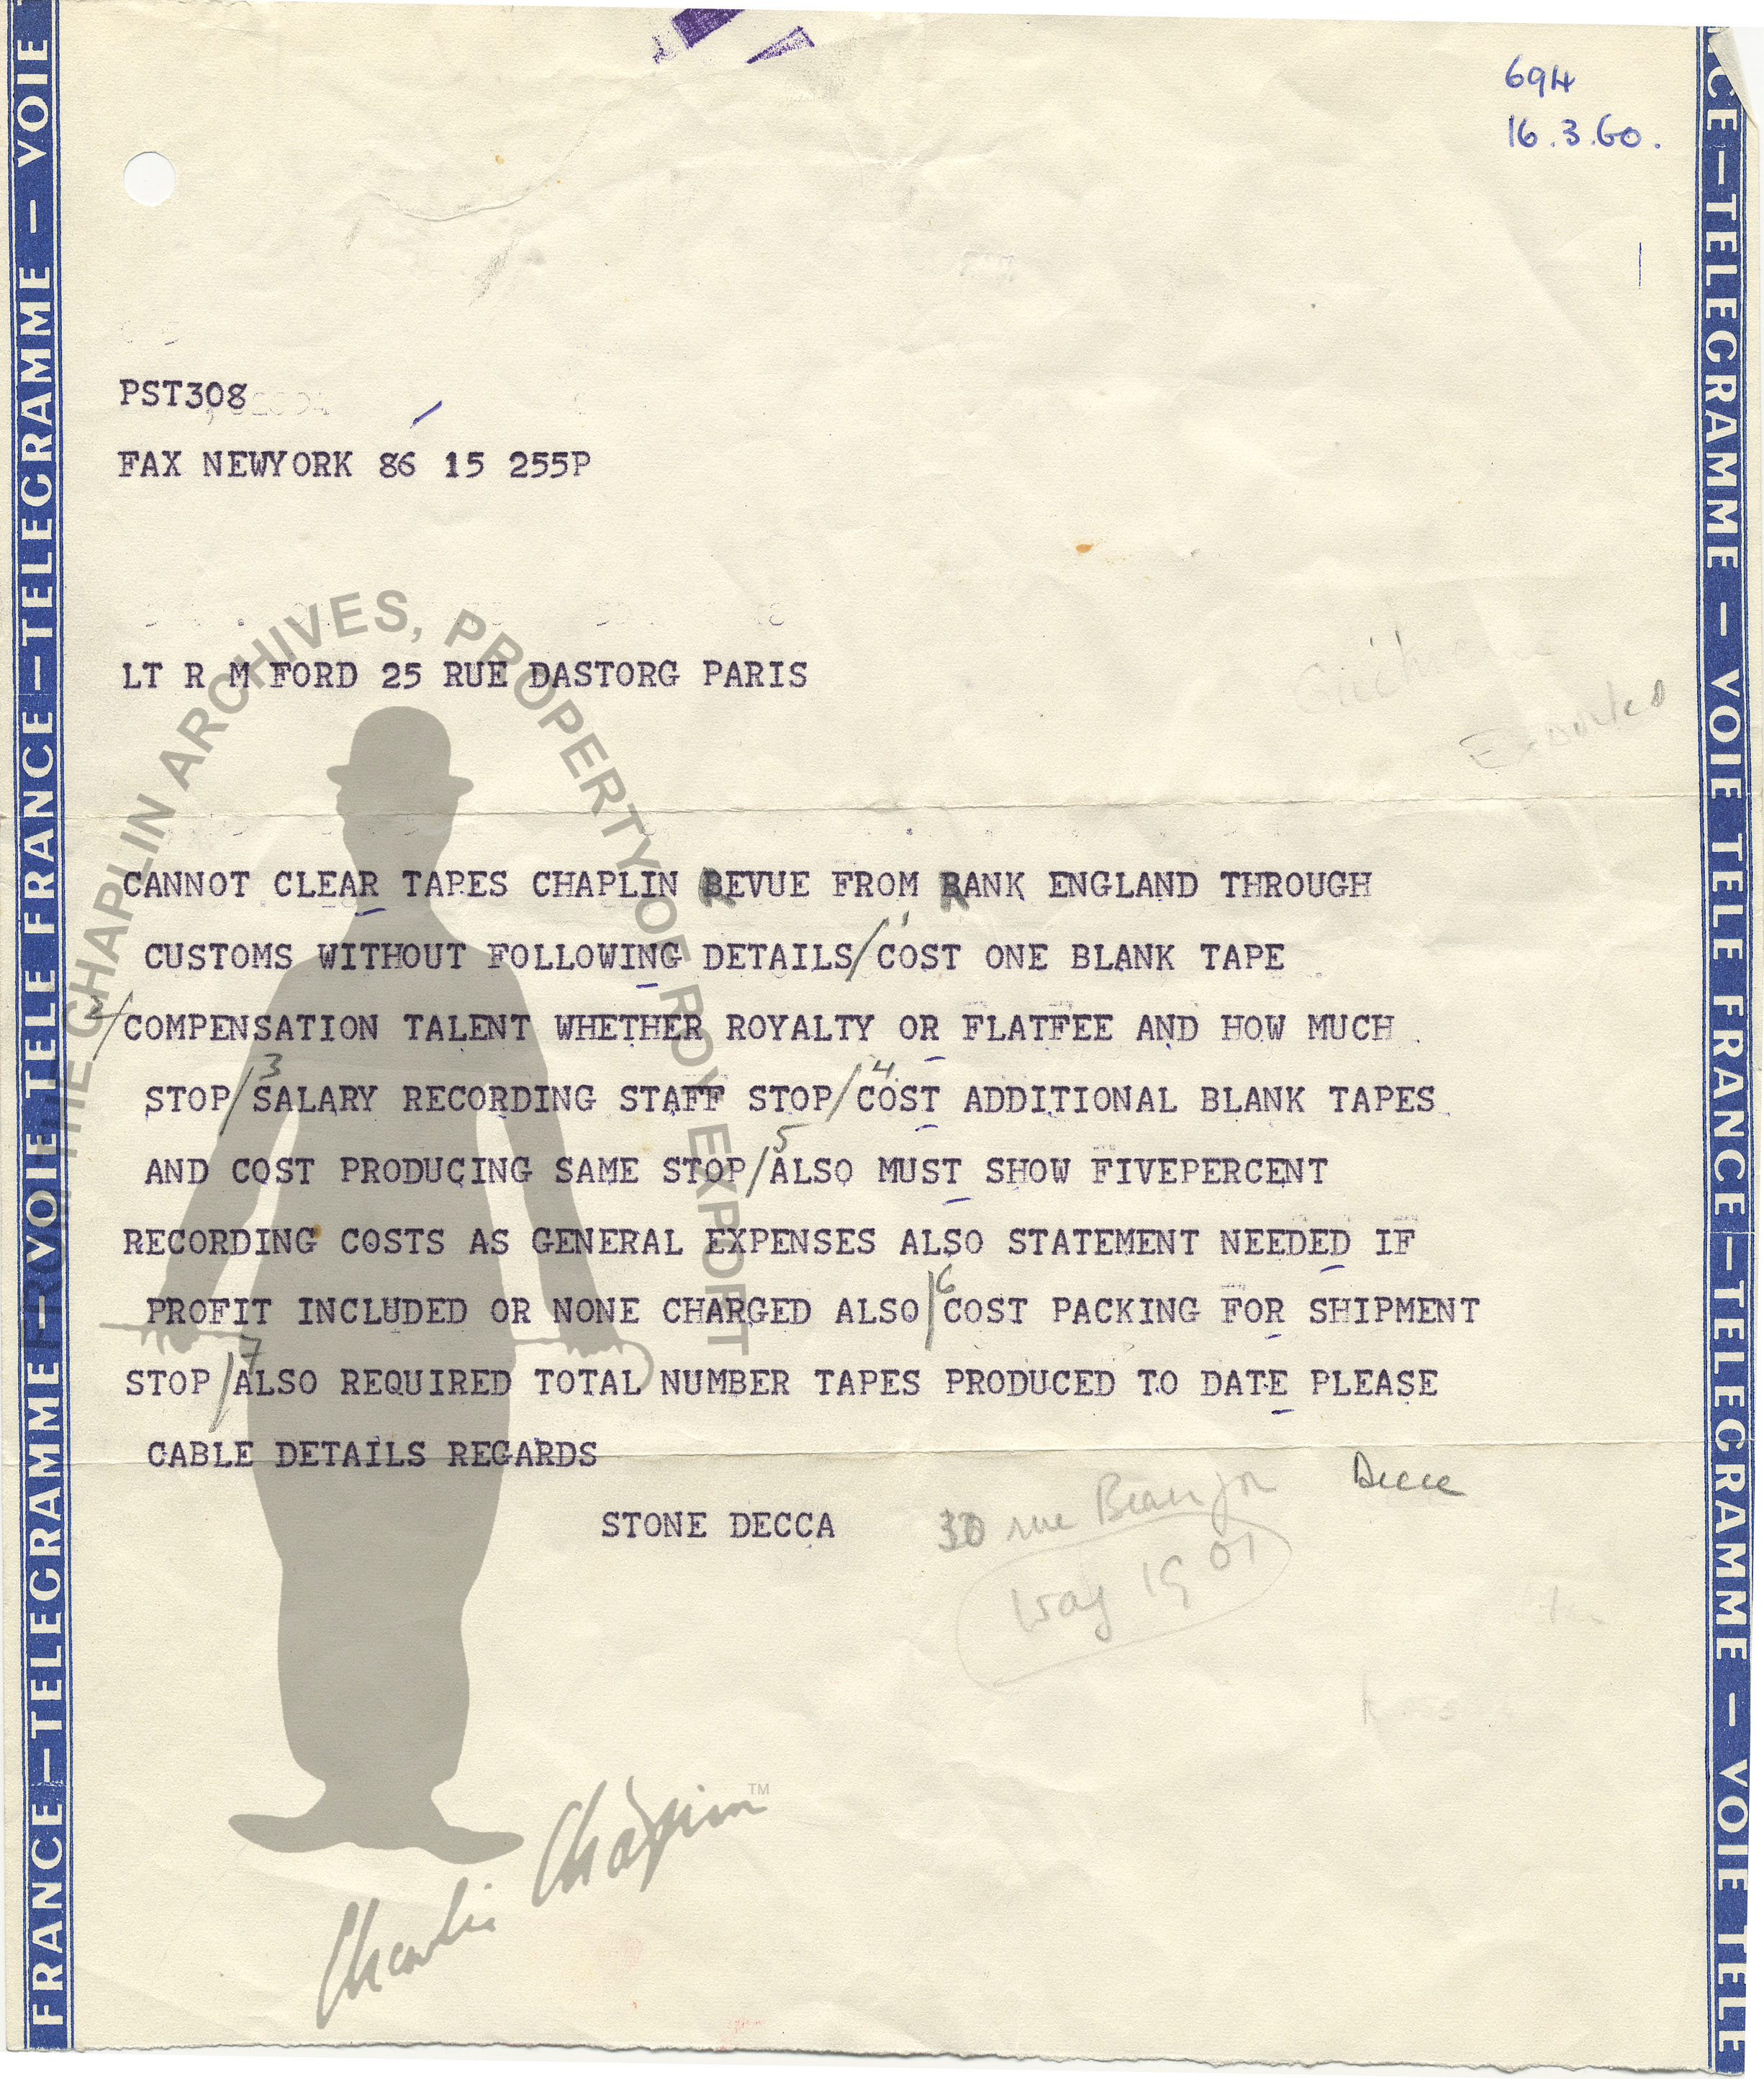 694
16.3.60.
PST308
FAX NEWYORK 86 15 255P
LT R M FORD 25 RUE DASTORG PARIS
Exported
CANNOT CLEAR TAPES CHAPLIN REVUE FROM RANK ENGLAND THROUGH
CUSTOMS WITHOUT FOLLOWING DETAILS/ 1 COST ONE BLANK TAPE
2/ COMPENSATION TALENT WHETHER ROYALTY OR FLATFEE AND HOW MUCH
STOP/ 3 SALARY RECORDING STAFF STOP/ 4 COST ADDITIONAL BLANK TAPES
AND COST PRODUCING SAME STOP/ 5 ALSO MUST SHOW FIVEPERCENT
RECORDING COSTS AS GENERAL EXPENSES ALSO STATEMENT NEEDED IF
PROFIT INCLUDED OR NONE CHARGED ALSO/ 6 COST PACKING FOR SHIPMENT
STOP/ 7 ALSO REQUIRED TOTAL NUMBER TAPES PRODUCED TO DATE PLEASE
CABLE DETAILS REGARDS
STONE DECCA
30 rue Beaujon
Decca
Wag 19 01
THE CHAPLIN ARCHIVES, PROPERTY OF ROY EXPORT
Charlie Chaplin™
FRANCE—TELEGRAMME—VOIE TELE FRANCE—TELEGRAMME—VOIE
CE—TELEGRAMME—VOIE TELE FRANCE—TELEGRAMME—VOIE TELE